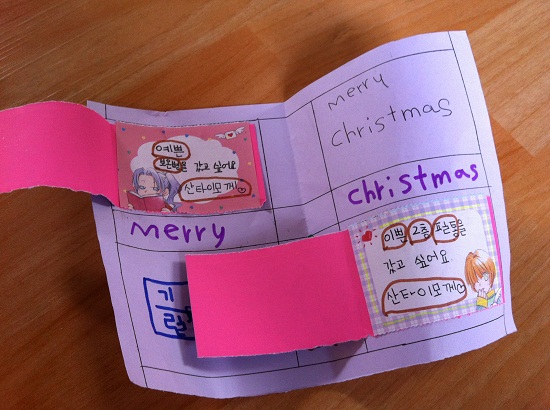 merry
christmas
예쁜
보온병을 갖고 싶어요
산타이모께
merry
christmas
이쁜 2층 필통을
갖고 싶어요
산타이모께